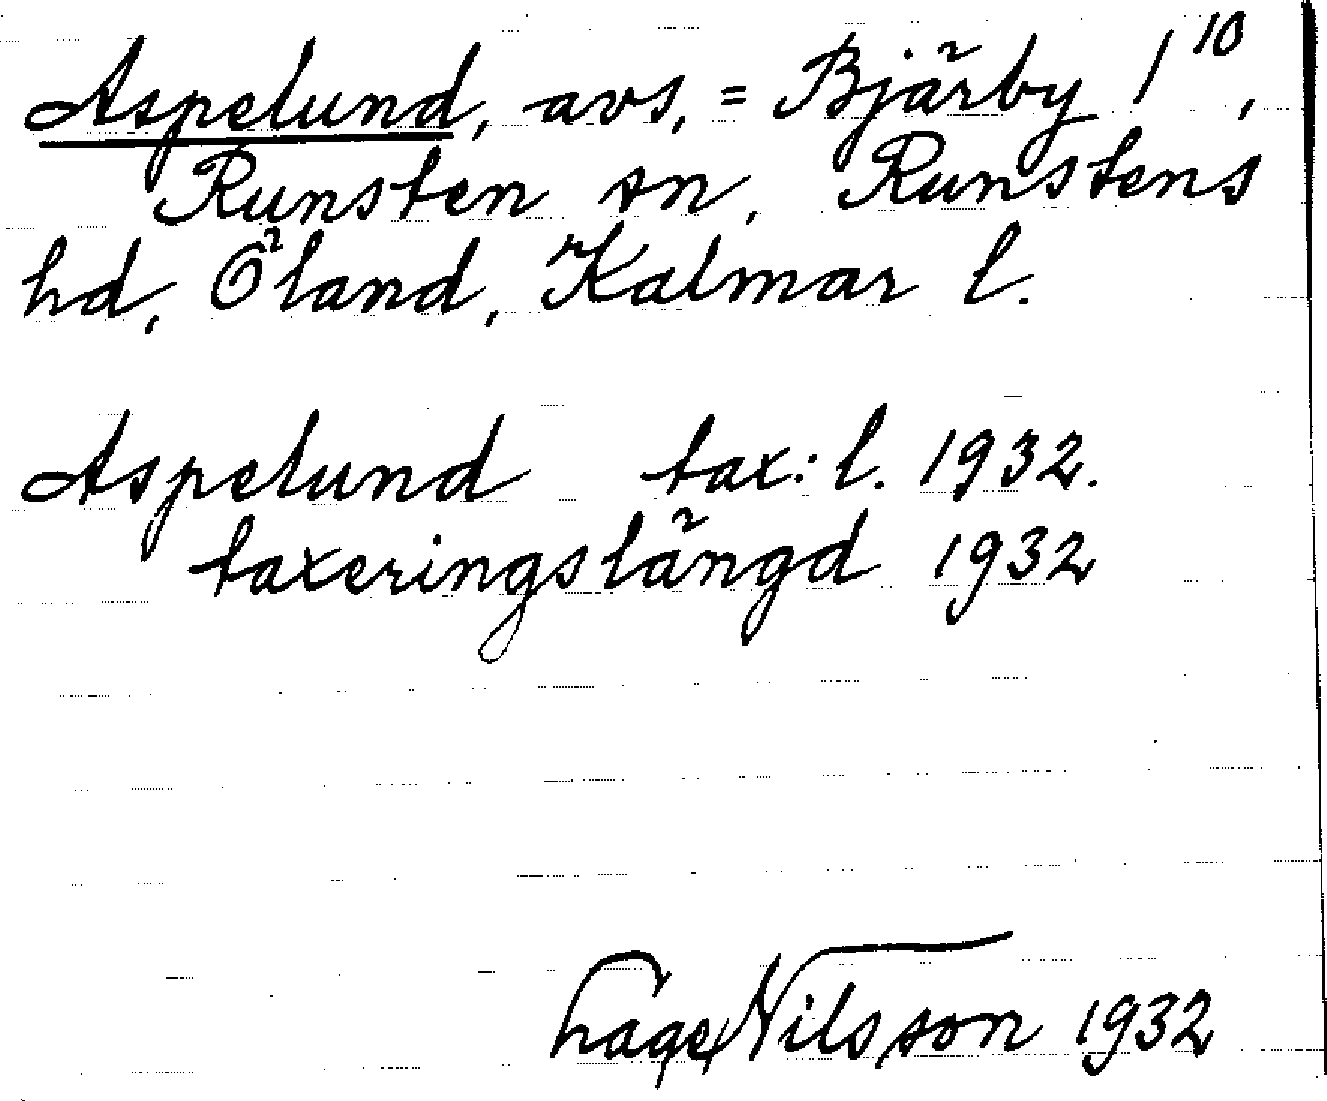 Aspelund, avs. = Bjärby 1¹⁰,
Runsten sn, Runstens
hd, Öland, Kalmar l.
Aspelund tax: l. 1932.
taxeringslängd 1932
Lage Nilsson 1932